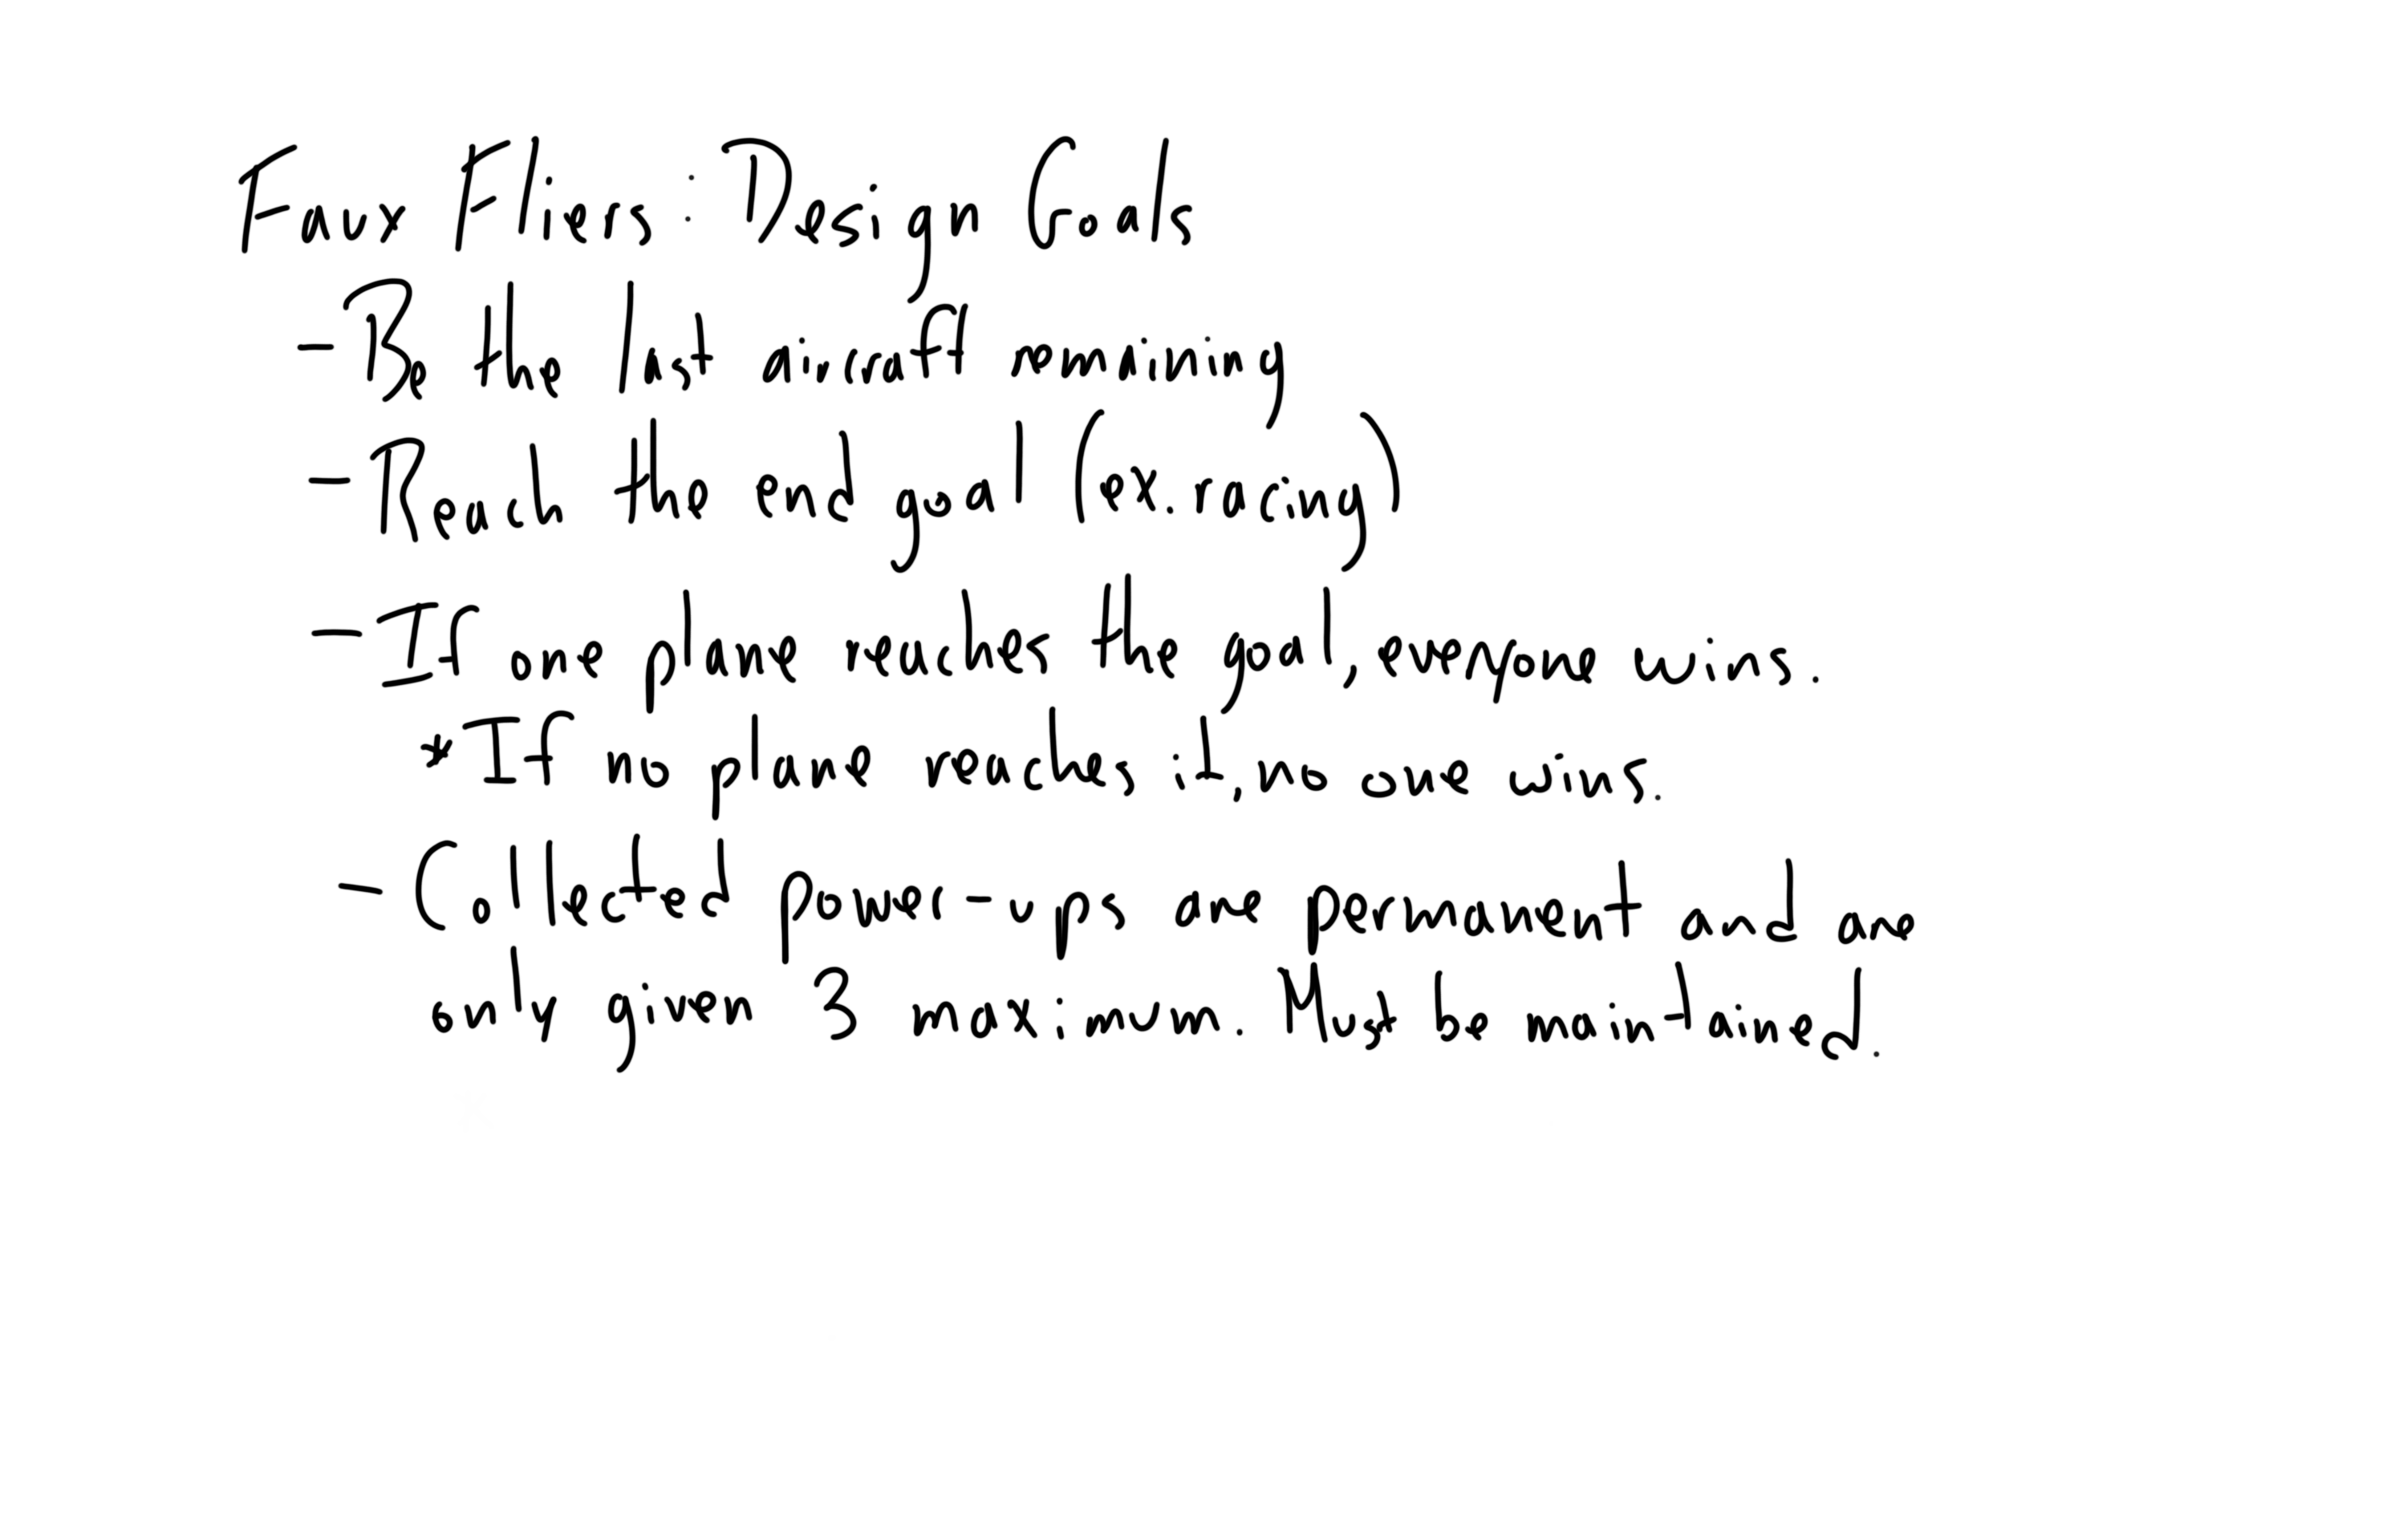 Faux Fliers: Design Goals
-Be the last aircraft remaining
-Reach the end goal (ex. racing)
-If one plane reaches the goal, everyone wins.
*If no plane reaches it, no one wins.
-Collected power-ups are permanent and are
only given 3 maximum. Must be maintained.